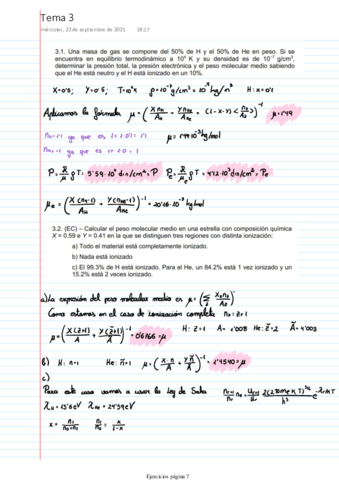 Tema 3
miércoles, 22 de septiembre de 2021 18:17
3.1. Una masa de gas se compone del 50% de H y el 50% de He en peso. Si se
encuentra en equilibrio termodinámico a 10⁴ K y su densidad es de 10⁻⁷ g/cm³,
determinar la presión total, la presión electrónica y el peso molecular medio sabiendo
que el He está neutro y el H está ionizado en un 10%.
X=0'5; Y=0'5; T=10⁴K ρ=10⁻⁷g/cm³=10⁻⁴kg/m³ H: x=0'1
Aplicamos la fórmula μ=(X n_H/A_H + Y n_He/A_He + (1-X-Y) )⁻¹ μ=1'49
n_H=1'1 ya que es 1+1·0'1=1'1
n_He=1 ya que es 1+0=1 μ=1'49·10⁻³kg/mol
P=R/μ ρT=5'59·10⁴ din/cm²=P P_e=R/μ_e ρT=4'12·10³ din/cm²=P_e
μ_e=(X(n_H-1)/A_H + Y(n_He-1)/A_He)⁻¹=20'16·10⁻³kg/mol
3.2. (EC) – Calcular el peso molecular medio en una estrella con composición química
X = 0.59 e Y = 0.41 en la que se distinguen tres regiones con distinta ionización:
a) Todo el material está completamente ionizado.
b) Nada está ionizado
c) El 99.3% de H está ionizado. Para el He, un 84.2% está 1 vez ionizado y un
15.2% está 2 veces ionizado.
a) La expresión del peso molecular medio es μ=
Como estamos en el caso de ionización completa n=z+1
μ=(X(z+1)/A + Y(z+1)/A)⁻¹=0'6766=μ H: z=1 A=1'008 He: z=2 A=4'003
b) H: n=1 He: n=1 μ=(X n/A + Y n/A)⁻¹=1'4540=μ
c)
Para este caso vamos a usar la ley de Saha
χ_H=13'6eV χ_He=24'59eV
Ejercicios página 7